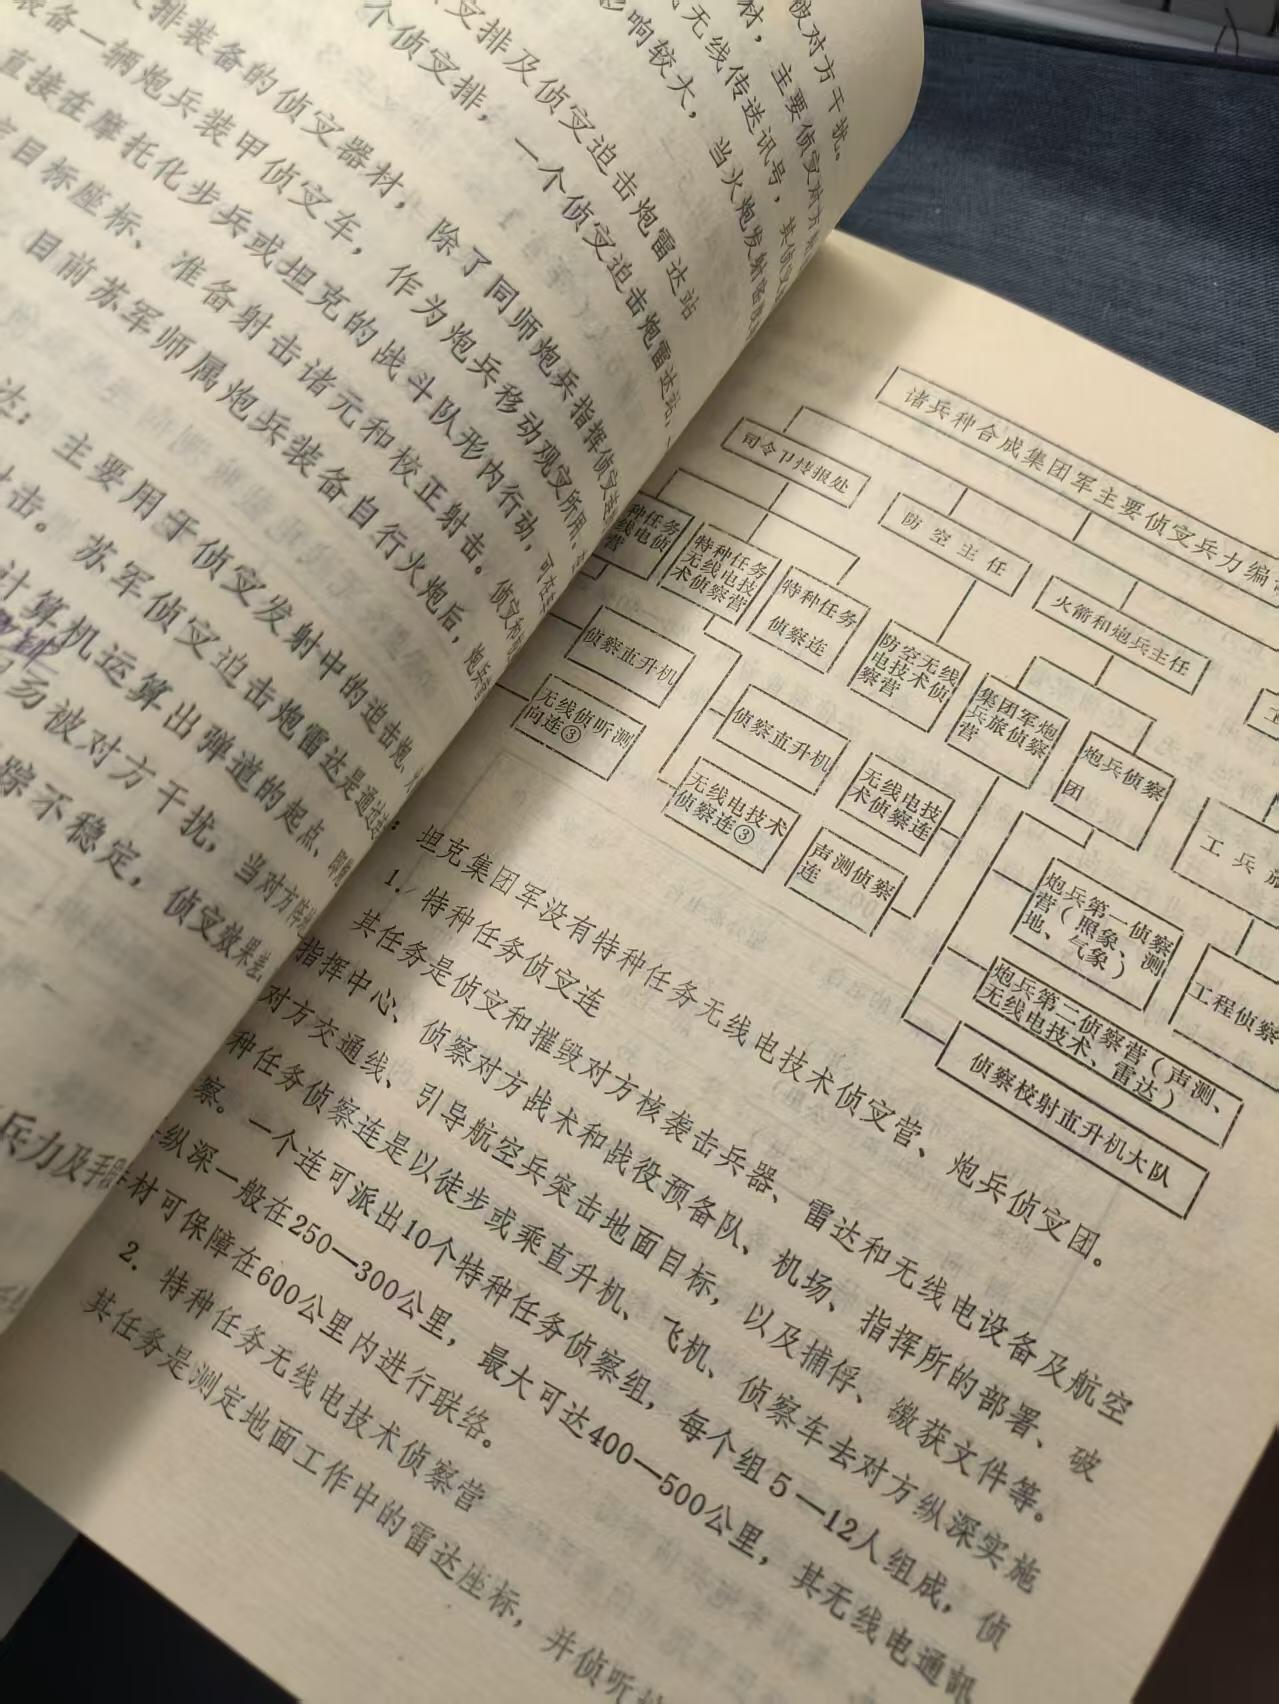 被对方干扰。
材，主要侦㝎敌方
无线传送讯号，其侦㝎
影响较大，当火炮发射密
㝎排及侦㝎迫击炮雷达站
个侦㝎排，一个侦㝎迫击炮雷达站，
排装备的侦㝎器材，除了同师炮兵指挥侦㝎
装备一辆炮兵装甲侦㝎车，作为炮兵移动观㝎所用。
直接在摩托化步兵或坦克的战斗队形内行动，可在
目标座标、准备射击诸元和校正射击。侦㝎和
目前苏军师属炮兵装备自行火炮后，炮兵
达：主要用于侦㝎发射中的迫击炮、
射击。苏军侦㝎迫击炮雷达是通过
计算机运算出弹道的起点、即
易被对方干扰，当对方
踪不稳定，侦㝎效果差
兵力及手段
诸兵种合成集团军主要侦㝎兵力编
司令卩情报处
防空主任
火箭和炮兵主任
工
种任务
线电侦
营
特种任务
无线电技
术侦察营
特种任务
侦察连
防空无线
电技术侦
察营
集团军炮
兵旅侦察
营
炮兵侦察
团
工兵旅
侦察直升机
无线侦听测
向连③
侦察直升机
无线电技术
侦察连③
无线电技
术侦察连
声测侦察
连
炮兵第一侦察
营（照象、测
地、气象）
炮兵第二侦察营（声测、
无线电技术、雷达）
侦察校射直升机大队
工程侦察
坦克集团军没有特种任务无线电技术侦㝎营、炮兵侦㝎团。
1. 特种任务侦㝎连
其任务是侦㝎和摧毁对方核袭击兵器、雷达和无线电设备及航空
指挥中心、侦察对方战术和战役预备队、机场、指挥所的部署、破
对方交通线、引导航空兵突击地面目标，以及捕俘、缴获文件等。
种任务侦察连是以徒步或乘直升机、飞机、侦察车去对方纵深实施
察。一个连可派出10个特种任务侦察组，每个组5—12人组成，侦
纵深一般在250—300公里，最大可达400—500公里，其无线电通訊
材可保障在600公里内进行联络。
2. 特种任务无线电技术侦察营
其任务是测定地面工作中的雷达座标，并侦听